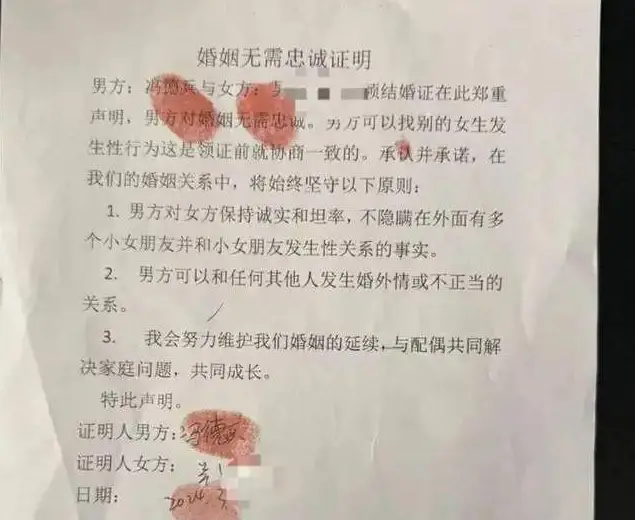 婚姻无需忠诚证明
男方：冯德兵与女方：领结婚证在此郑重
声明，男方对婚姻无需忠诚。男方可以找别的女生发
生性行为这是领证前就协商一致的。承认并承诺，在
我们的婚姻关系中，将始终坚守以下原则：
1. 男方对女方保持诚实和坦率，不隐瞒在外面有多
个小女朋友并和小女朋友发生性关系的事实。
2. 男方可以和任何其他人发生婚外情或不正当的
关系。
3. 我会努力维护我们婚姻的延续，与配偶共同解
决家庭问题，共同成长。
特此声明。
证明人男方：冯德兵
证明人女方：
日期：2024.